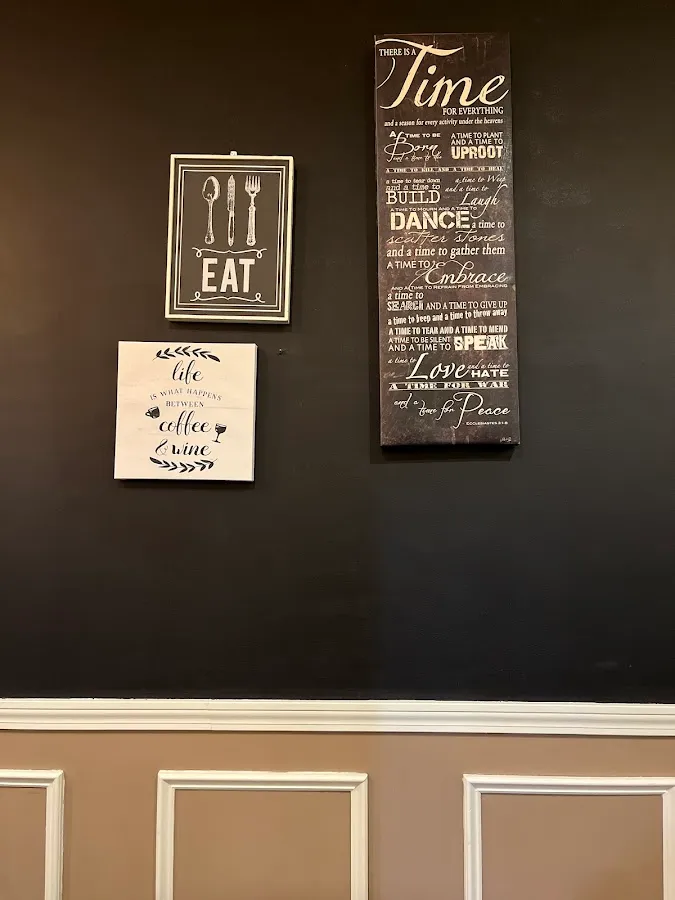 EAT
life
IS WHAT HAPPENS
BETWEEN
coffee
& wine
THERE IS A
Time
FOR EVERYTHING
and a season for every activity under the heavens
A TIME TO BE
Born
and a time to die
A TIME TO PLANT
AND A TIME TO
UPROOT
A TIME TO KILL AND A TIME TO HEAL
a time to tear down
and a time to
BUILD
a time to Weep
and a time to
Laugh
A TIME TO MOURN AND A TIME TO
DANCE a time to
scatter stones
and a time to gather them
A TIME TO Embrace
AND A TIME TO REFRAIN FROM EMBRACING
a time to
SEARCH AND A TIME TO GIVE UP
a time to keep and a time to throw away
A TIME TO TEAR AND A TIME TO MEND
A TIME TO BE SILENT
AND A TIME TO SPEAK
a time to Love and a time to
HATE
A TIME FOR WAR
and a time for Peace
ECCLESIASTES 3:1-8